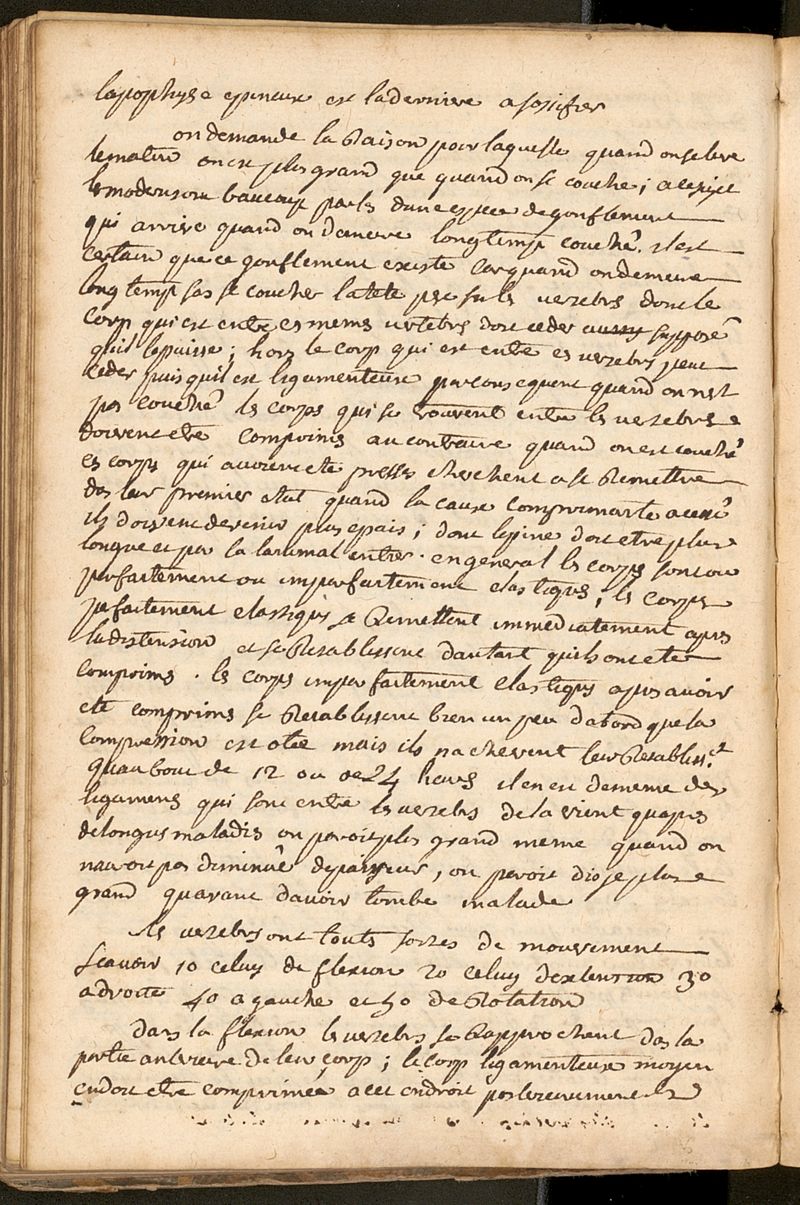 lapophyse epineuse est laderniere a sossifier
on demande la Raison pour laquelle quand onseleve
lematin on est plus grand que quand on se couche ; a cesujet
les modernes ont baucoup parlé dune espece de gonflement
qui arrive quand on demeure longtemp couché. il est
certain que ce gonflement existe car quand on demeure
long temp sas se coucher la tete pese sur les vertebrs dont le
corp qui est entre ces memes vertebrs doit ceder aussy supposé
quil le puisse ; hors le corp qui est entre ces vertebrs peut
ceder puis quil est ligamenteux par consequent quand on nest
pas couché les corps qui se trouvent entre les vertebrs
doivent etre comprimés au contraire quand on est couché
ces corps qui avoient eté pressés cherchent a se Remettre
das leur premier etat quand la cause comprimante a cessé
ils doivent devenir plus epais ; donc lepine doit etre plus
longue et par la lanimal entier . en general les corps sont ou
parfaitement ou imparfaitement elastiques ; les corps
parfaitement elastiques se Remettent immediatement apres
la distension et se Retablissent dautant quils ont eté
comprimés . les corps imparfaitement elastiques apres avoir
eté comprimés se Retablissent bien un peu dabord que la
compression est otée mais ils nachevent leur Retabliss.t
quau bout de 12 ou de 24 heurs il en est de meme des
ligamens qui sont entre les vertebrs de la vient quapres
de longues maladies on paroit plus grand meme quand on
nauroit pas diminué depaisseur , on paroit dis je plus
grand quavant davoir tombé malade
les vertebrs ont touts sortes de mouvement
scavoir 1o celuy de flexion 2o celuy dextention 3o
a droite 4o a gauche et 5o de Rotation
dans la flexion les vertebrs se Rapprochent das la
partie anterieure de leur corp ; le corp ligamenteux moyen
en doit etre comprimée a cet endroit posterieurement